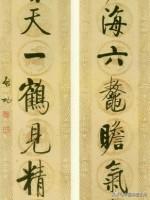 海六鼇瞻氣
天一鶴見精
启功